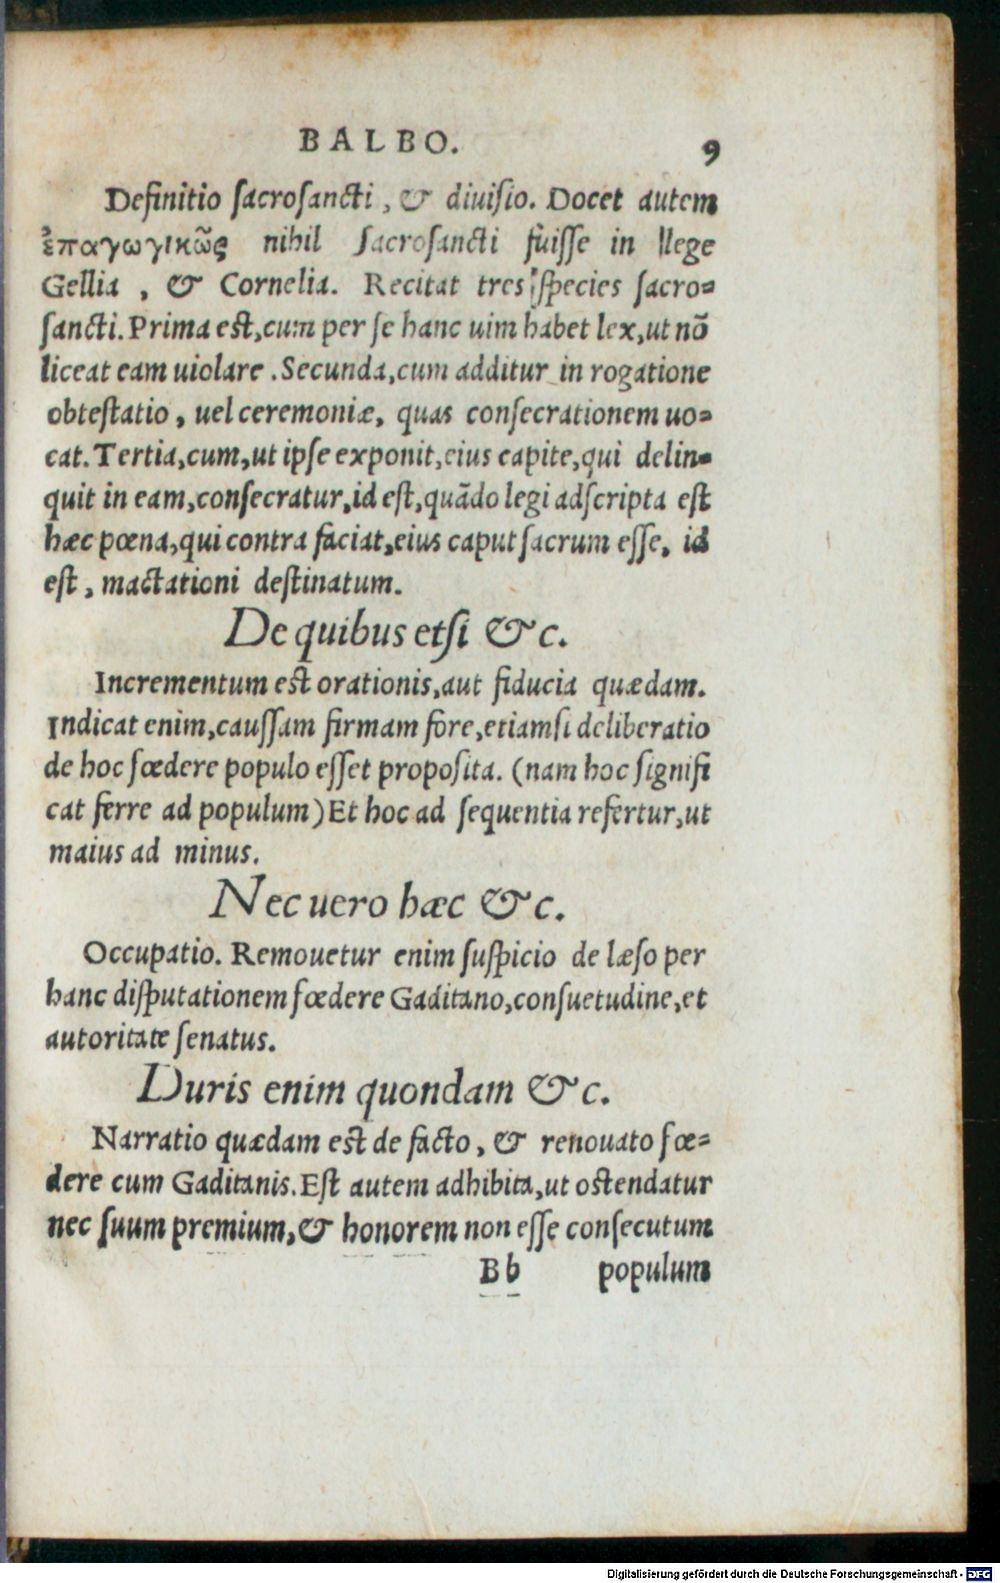 BALBO. 9
Definitio sacrosancti, & diuisio. Docet autem
ἐπαγωγικῶς nihil sacrosancti fuisse in lege
Gellia, & Cornelia. Recitat tres species sacro=
sancti. Prima est, cum per se hanc uim habet lex, ut nō
liceat eam uiolare. Secunda, cum additur in rogatione
obtestatio, uel ceremoniæ, quas consecrationem uo=
cat. Tertia, cum, ut ipse exponit, eius capite, qui delin=
quit in eam, consecratur, id est, quādo legi adscripta est
hæc pœna, qui contra faciat, eius caput sacrum esse, id
est, mactationi destinatum.
De quibus etsi &c.
Incrementum est orationis, aut fiducia quædam.
Indicat enim, caussam firmam fore, etiamsi deliberatio
de hoc fœdere populo esset proposita. (nam hoc signifi
cat ferre ad populum) Et hoc ad sequentia refertur, ut
maius ad minus.
Nec uero hæc &c.
Occupatio. Remouetur enim suspicio de læso per
hanc disputationem fœdere Gaditano, consuetudine, et
autoritate senatus.
Duris enim quondam &c.
Narratio quædam est de facto, & renouato fœ=
dere cum Gaditanis. Est autem adhibita, ut ostendatur
nec suum premium, & honorem non esse consecutum
Bb populum
Digitalisierung gefördert durch die Deutsche Forschungsgemeinschaft - DFG